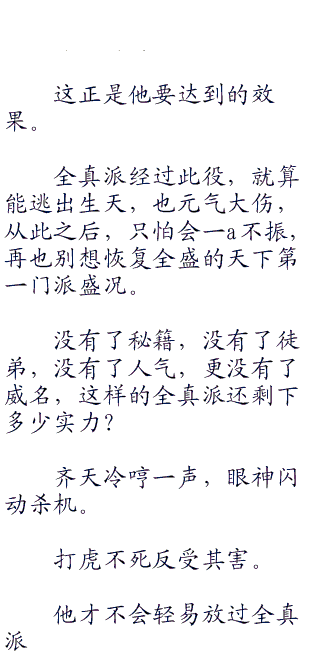 这正是他要达到的效
果。
全真派经过此役，就算
能逃出生天，也元气大伤，
从此之后，只怕会一a不振，
再也别想恢复全盛的天下第
一门派盛况。
没有了秘籍，没有了徒
弟，没有了人气，更没有了
威名，这样的全真派还剩下
多少实力？
齐天冷哼一声，眼神闪
动杀机。
打虎不死反受其害。
他才不会轻易放过全真
派